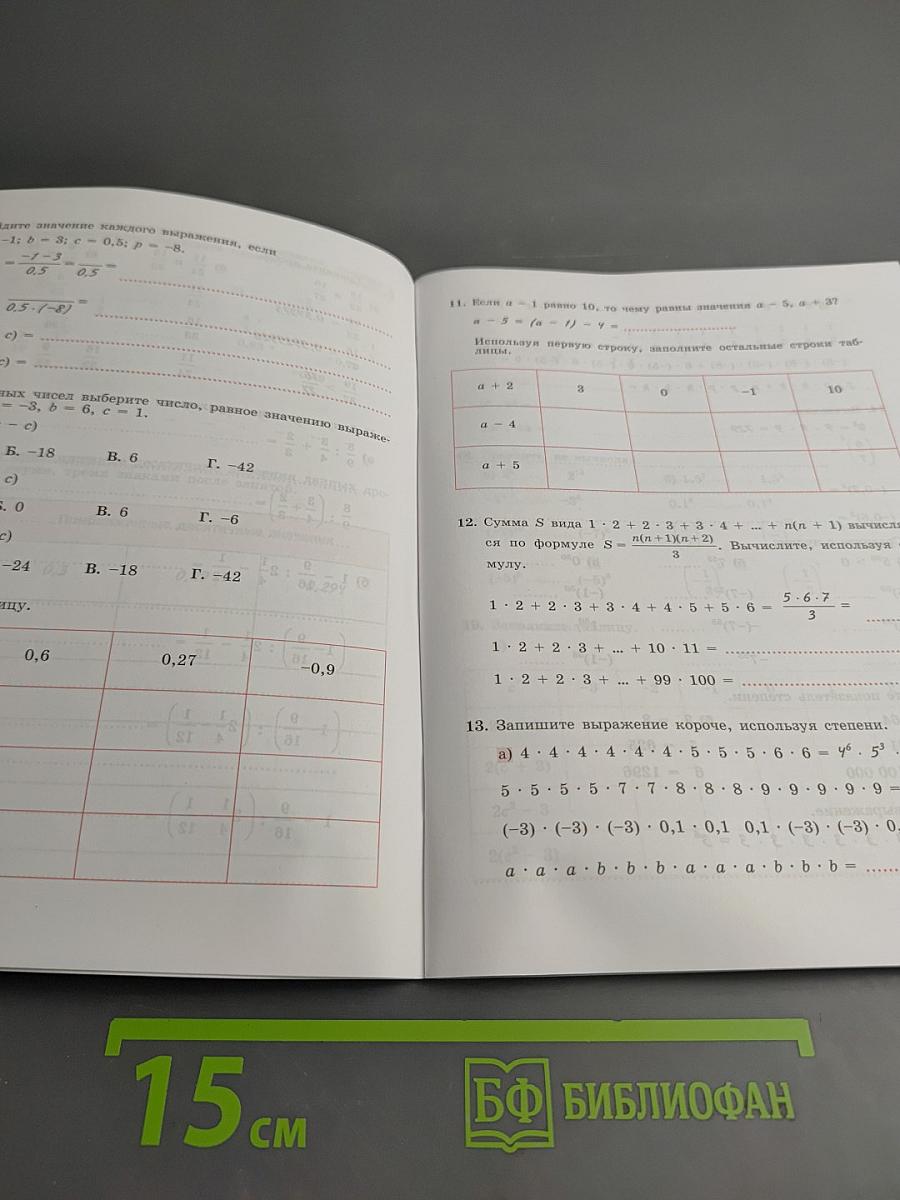 дите значение каждого выражения, если
-1; b = 3; c = 0,5; p = -8.
= \frac{-1-3}{0,5} = \frac{}{0,5} =
\frac{}{0,5 \cdot (-8)} =
c) =
c) =
ных чисел выберите число, равное значению выраже-
= -3, b = 6, c = 1.
- c)
Б. -18 В. 6 Г. -42
c)
Б. 0 В. 6 Г. -6
c)
-24 В. -18 Г. -42
ицу.
0,6 0,27 -0,9
11. Если a - 1 равно 10, то чему равны значения a - 5, a + 3?
a - 5 = (a - 1) - 4 =
Используя первую строку, заполните остальные строки таб-
лицы.
a + 2 3 0 -1 10
a - 4
a + 5
12. Сумма S вида 1 · 2 + 2 · 3 + 3 · 4 + ... + n(n + 1) вычисля
ся по формуле S = \frac{n(n+1)(n+2)}{3}. Вычислите, используя
мулу.
1 · 2 + 2 · 3 + 3 · 4 + 4 · 5 + 5 · 6 = \frac{5 · 6 · 7}{3} =
1 · 2 + 2 · 3 + ... + 10 · 11 =
1 · 2 + 2 · 3 + ... + 99 · 100 =
13. Запишите выражение короче, используя степени.
а) 4 · 4 · 4 · 4 · 4 · 4 · 5 · 5 · 5 · 6 · 6 = 4⁶ · 5³ ·
5 · 5 · 5 · 5 · 7 · 7 · 8 · 8 · 8 · 9 · 9 · 9 · 9 · 9 =
(-3) · (-3) · (-3) · 0,1 · 0,1 0,1 · (-3) · (-3) · 0,
a · a · a · b · b · b · a · a · a · b · b · b =
15 см
БФ БИБЛИОФАН